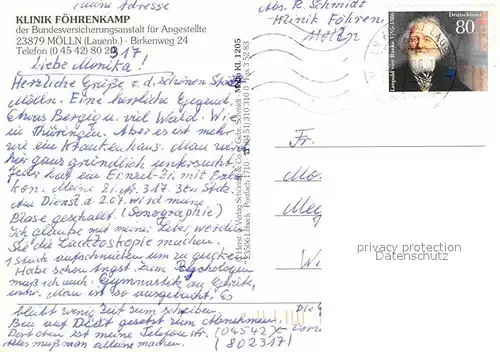 meine Adresse
KLINIK FÖHRENKAMP
der Bundesversicherungsanstalt für Angestellte
23879 MÖLLN (Lauenb.) - Birkenweg 24
Telefon (0 45 42) 80 20
317
Liebe Monika!
Herzliche Grüße v. d. schönen Stadt
Mölln. Eine herrliche Gegend.
Etwas Bergig u. viel Wald. Wie
in Thüringen. Aber es ist mehr
wie ein Krankenhaus. Man wird
hier ganz gründlich untersucht.
Jeder hat ein Einzel-Zi. mit Bal-
kon. Meine Zi. Nr. 317. 3ter Stck.
Am Dienst. d. 2.07. wird meine
Blase geschallt (Sonographie)
Ich glaube mit meine Leber werden
Sie die
1 Stück aufschneiden um zu gucken.
Habe schon Angst. Zum Psychologen
muß ich auch. Gymnastik an Geräte,
usw. Man ist so ausgebucht. Es
bleibt wenig Zeit zum schreiben.
Bin auf Diät gesetzt zum Abnehmen.
Dort oben ist meine Telefon Nr. (04542
Alles muß man alleine machen. 802317)
Abs. R. Schmidt
Klinik Föhren
Mölln
Deutschland
80
Leopold von Ranke
Fr.
Mo.
W
Die
Vorw
privacy protection
Datenschutz